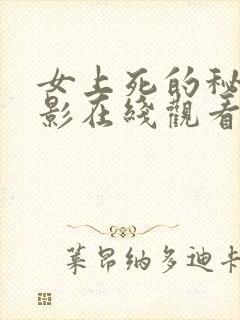 女上死的秘
影在綫觀看
莱昂纳多迪卡